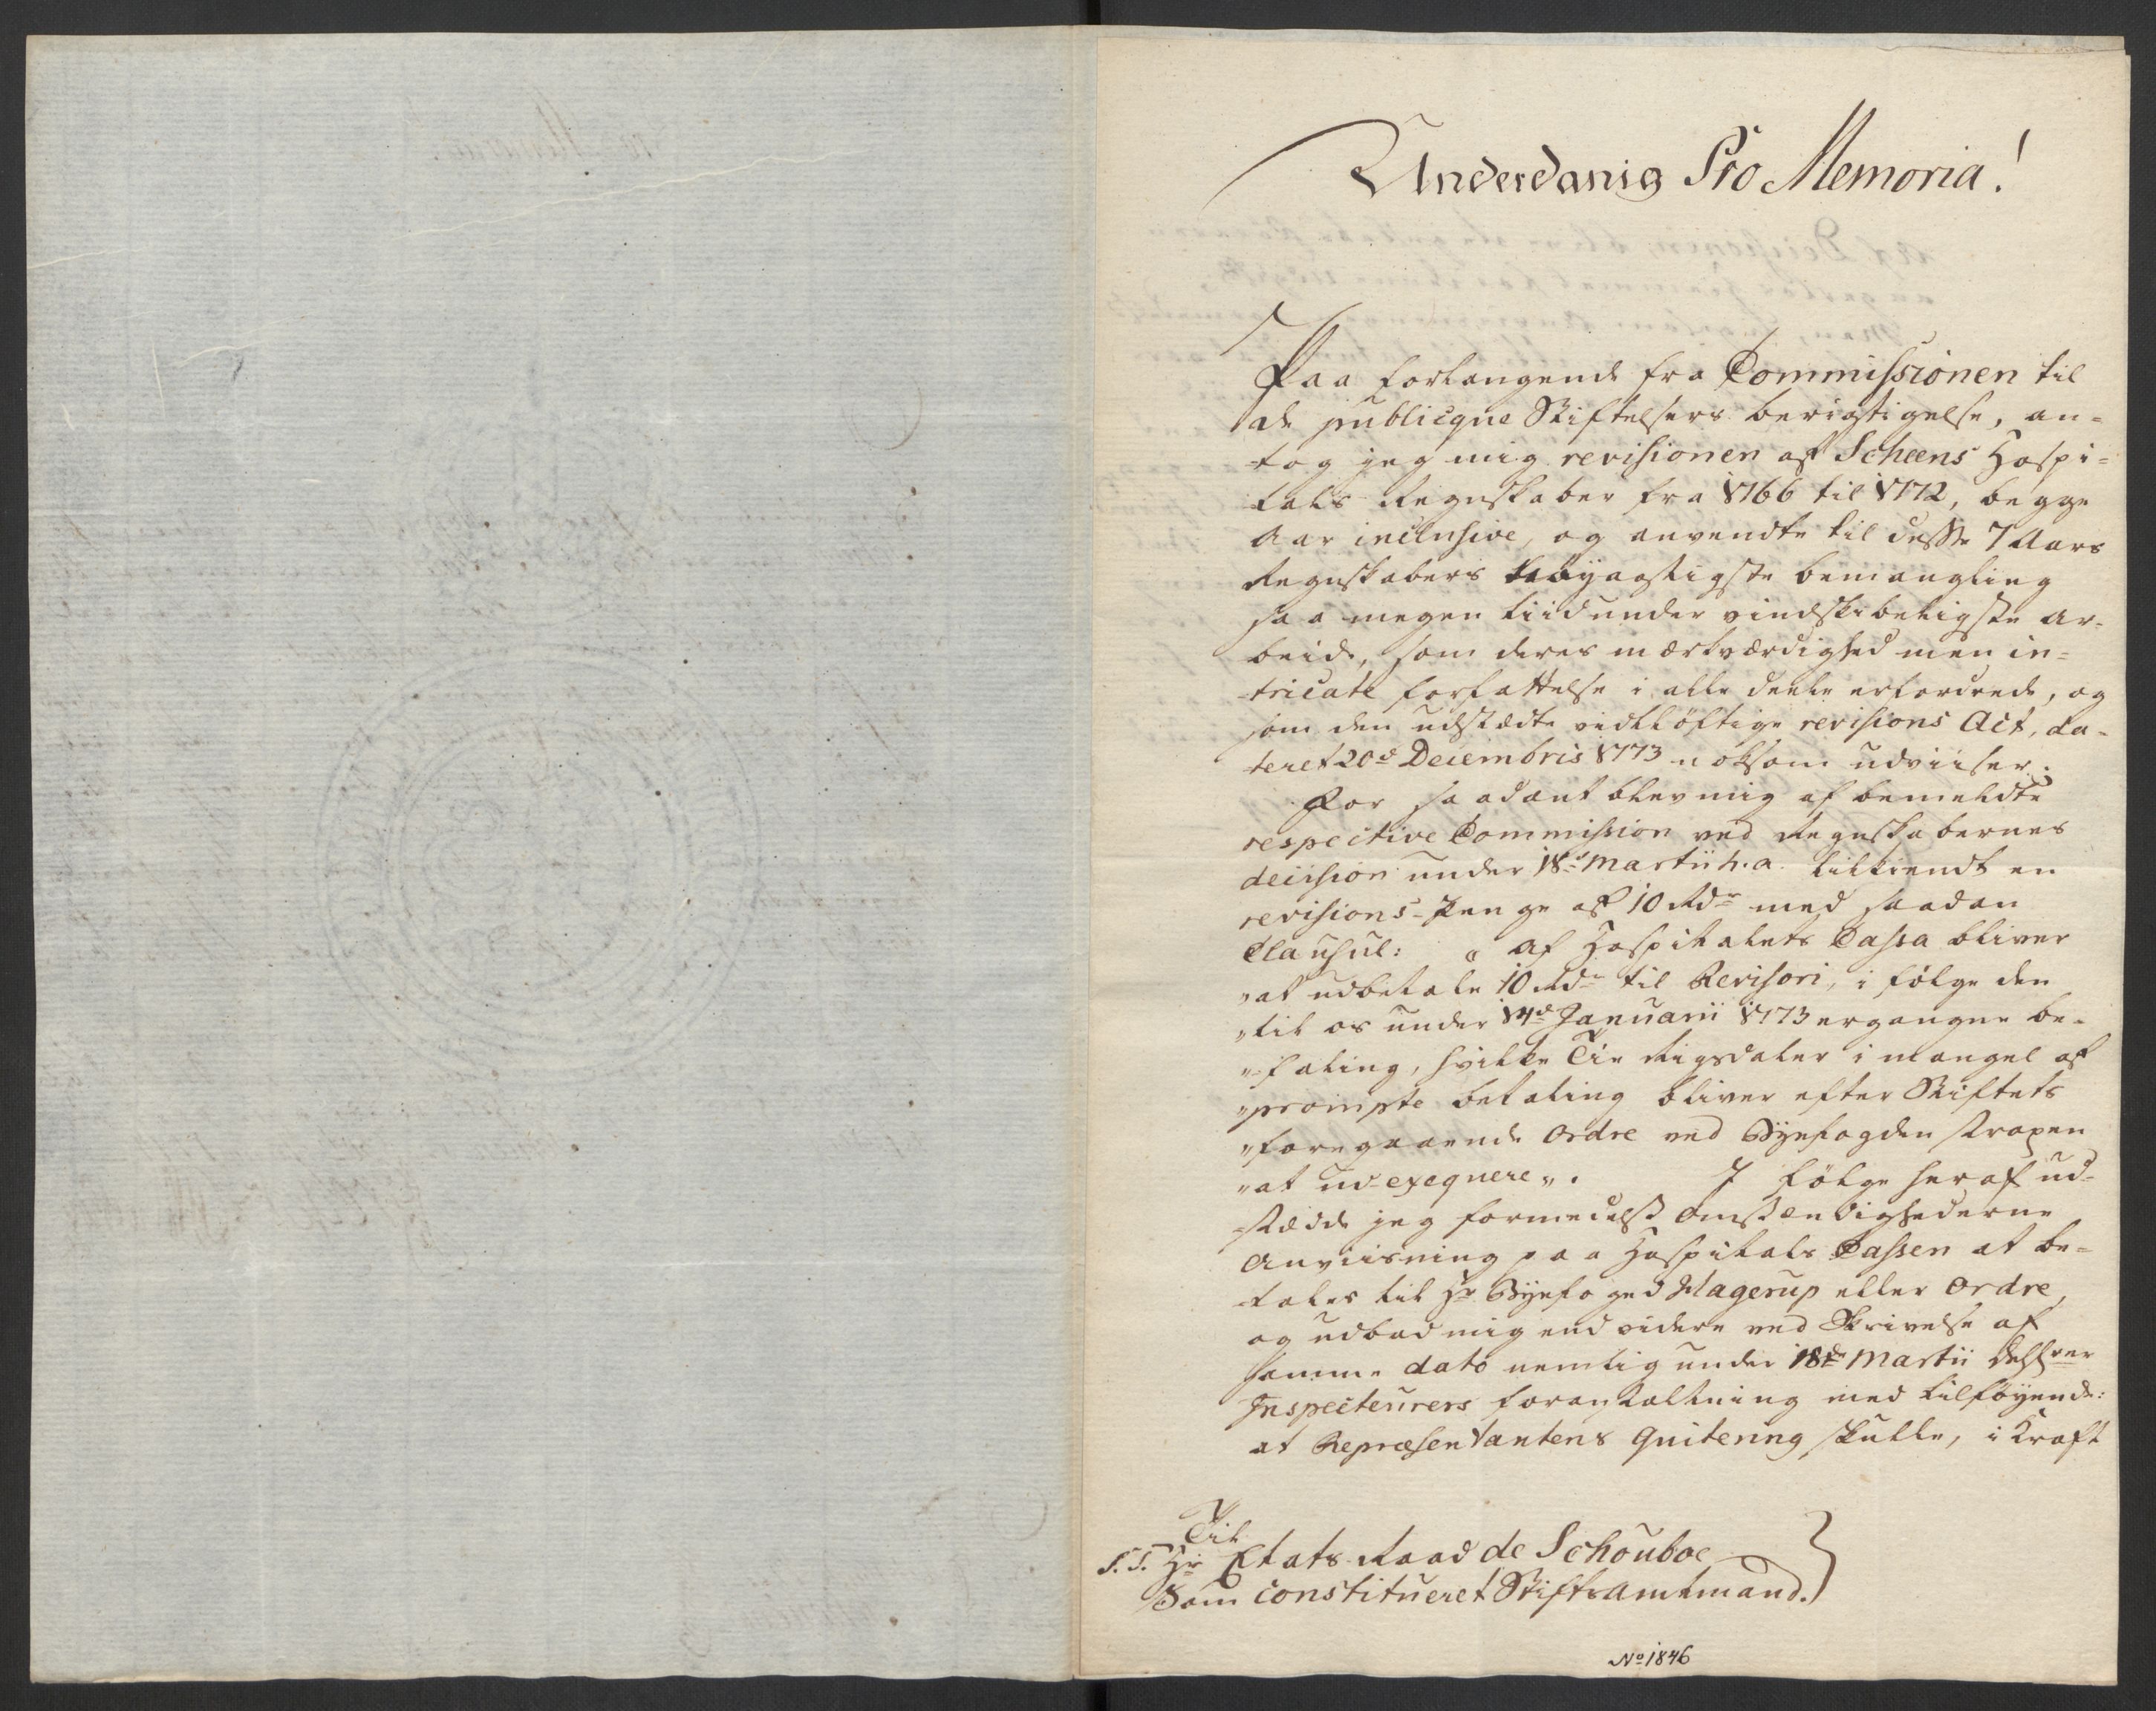 Underdanig Pro Memoria!
Paa forlangende fra Commissionen til
de publicqve Stiftelsers berigtigelse, an-
tog jeg mig revisionen af Scheens Hospi-
tals Regnskaber fra 1766 til 1772, begge
Aar inclusive, og anvendte til disse 7 Aars
Regnskabers nöyagtigste bemangling
saa megen tiid under vindskibeligste ar-
beide, som deres mærkværdighed men in-
tricate forfattelse i alle deele erfordrede, og
som den udstædte vidtlöftige revisions Act, da-
teret 20d Decembris 1773 noksom udviiser.
For saadant blev mig af bemeldte
respective Commission ved Regnskabernes
decision under 18d Martii h. a. tilkiendt en
revisions-Penge af 10 Rdr med saadan
Clausul: „ af Hospitalets Cassa bliver
„at udbetale 10 Rdr til Revisori, i fölge den
„til os under 14d Januarii 1773 ergangne be-
„faling, hvilke Tie Rigsdaler i mangel af
„prompte betaling bliver efter Stiftets
„foregaaende Ordre ved Byefogden strapen
„at ud-exeqvere„. I fölge heraf ud-
stædde jeg formedelst Omstændighederne
Anviisning paa Hospitals Cassen at be-
tales til Hr Byefoged Hagerup eller Ordre,
og udbad mig end videre ved Skrivelse af
samme dato nemlig under 18de Martii
Inspecteurers foranstaltning med tilföyende:
at Repræsentantens Qvitering skulle, i Kraft
Til
S. T. Hr Etats-Raad de Schouboe
Som constitueret Stiftsamtmand.
No 1846